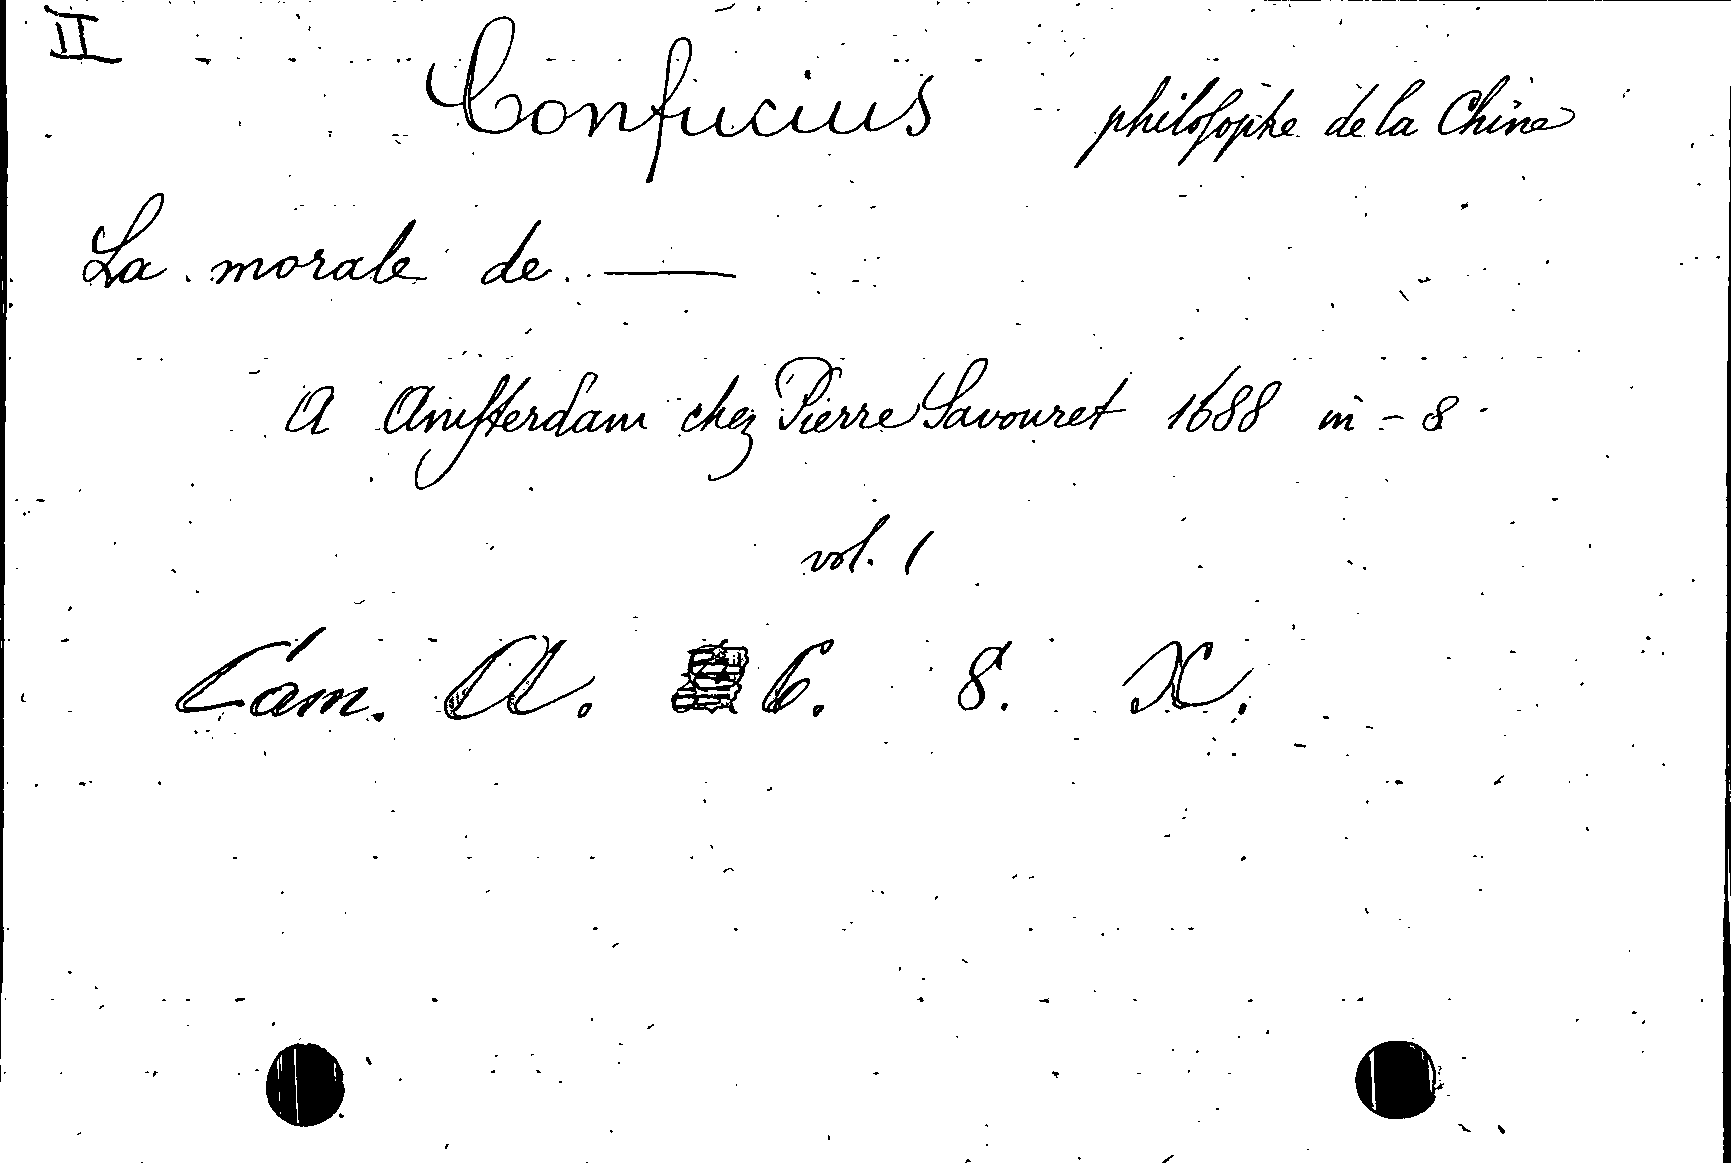 II
Confucius philosophe de la Chine
La morale de ———
A Amsterdam chez Pierre Savouret 1688 in-8.
vol. 1
Cam. A. 6. 8. X.